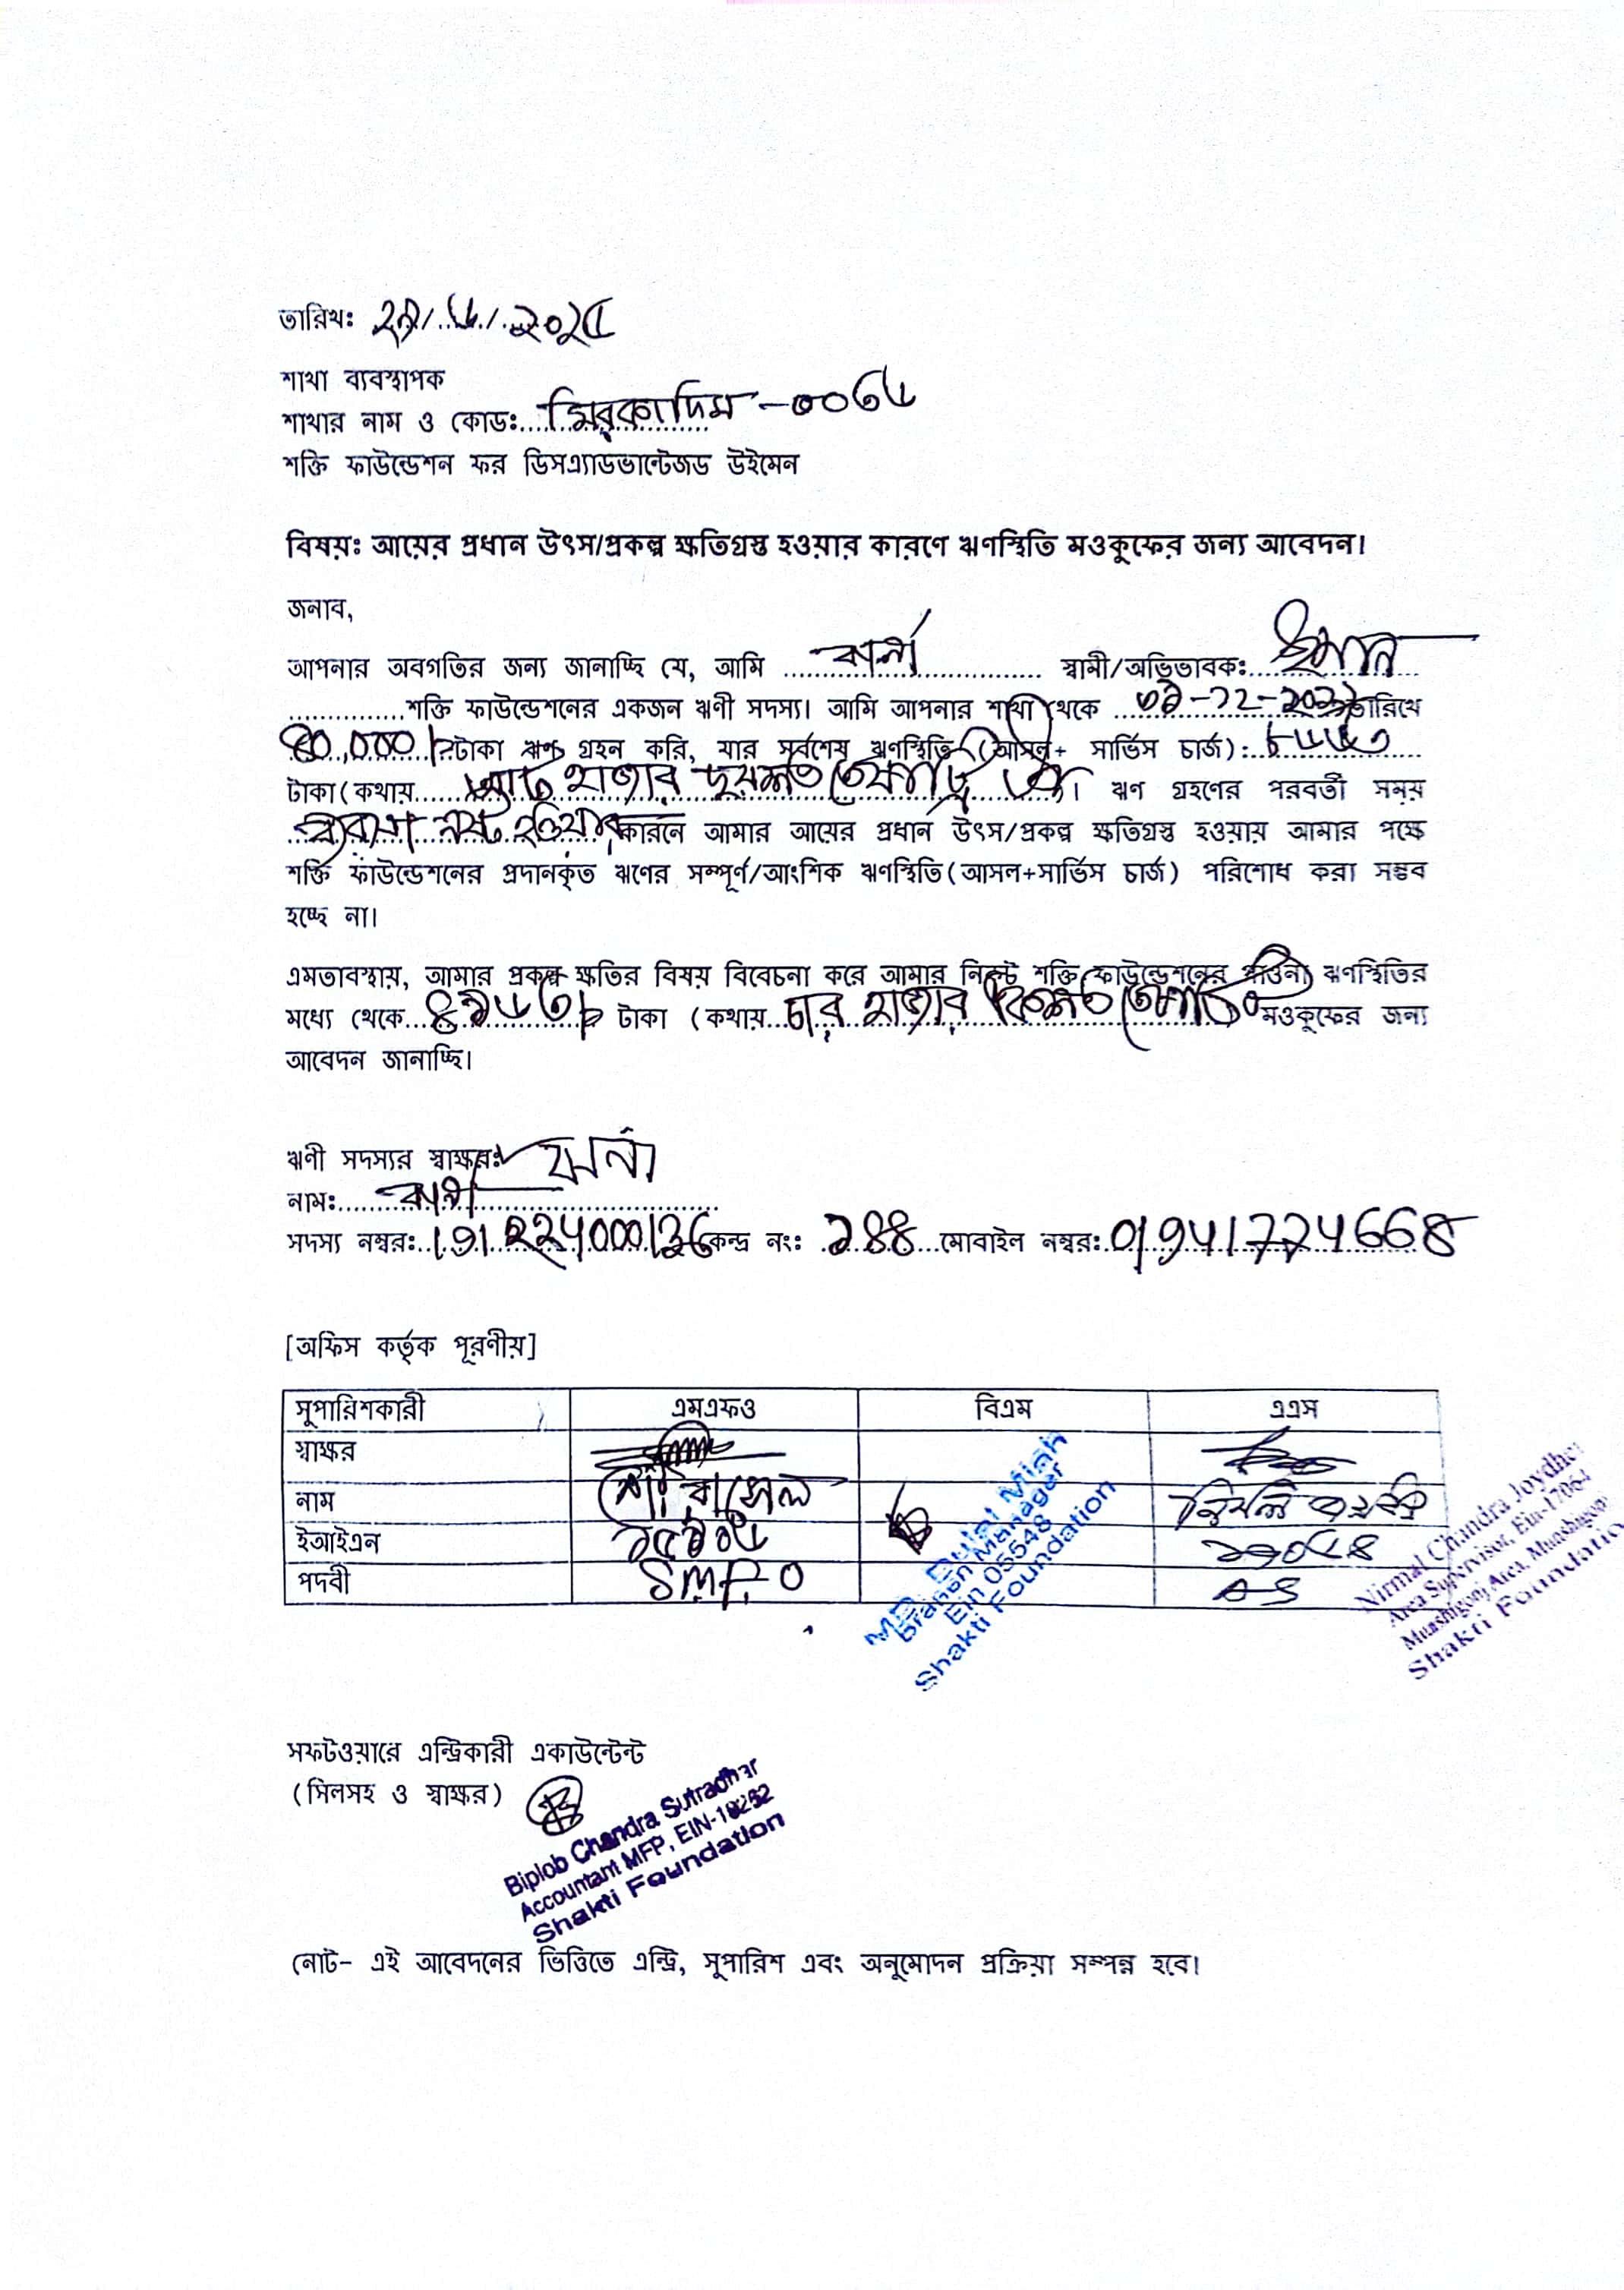 তারিখঃ ২৯/৬/২০২৫
শাখা ব্যবস্থাপক
শাখার নাম ও কোডঃ মিরকাদিম -০০৬৬
শক্তি ফাউন্ডেশন ফর ডিসএ্যাডভান্টেজড উইমেন
বিষয়ঃ আয়ের প্রধান উৎস/প্রকল্প ক্ষতিগ্রস্ত হওয়ার কারণে ঋণস্থিতি মওকুফের জন্য আবেদন।
জনাব,
আপনার অবগতির জন্য জানাচ্ছি যে, আমি ঝর্না স্বামী/অভিভাবকঃ
শক্তি ফাউন্ডেশনের একজন ঋণী সদস্য। আমি আপনার শাখা থেকে তারিখে
টাকা ঋণ গ্রহন করি, যার সর্বশেষ ঋণস্থিতি (আসল+ সার্ভিস চার্জ):
টাকা(কথায় আট হাজার ঋণ গ্রহণের পরবর্তী সময়
ব্যবসা নষ্ট হওয়ার কারনে আমার আয়ের প্রধান উৎস/প্রকল্প ক্ষতিগ্রস্ত হওয়ায় আমার পক্ষে
শক্তি ফাউন্ডেশনের প্রদানকৃত ঋণের সম্পূর্ণ/আংশিক ঋণস্থিতি(আসল+সার্ভিস চার্জ) পরিশোধ করা সম্ভব
হচ্ছে না।
এমতাবস্থায়, আমার প্রকল্প ক্ষতির বিষয় বিবেচনা করে আমার নিকট শক্তি ফাউন্ডেশনের পাওনা ঋণস্থিতির
মধ্যে থেকে টাকা (কথায় চার হাজার মওকুফের জন্য
আবেদন জানাচ্ছি।
ঋণী সদস্যর স্বাক্ষরঃ ঝর্না
নামঃ ঝর্না
সদস্য নম্বরঃ কেন্দ্র নং: ১৪৪ মোবাইল নম্বর: 01941724668
[অফিস কর্তৃক পূরণীয়]
সুপারিশকারী এমএফও বিএম এএস
স্বাক্ষর
নাম মোঃ রাসেল
ইআইএন
পদবী SMFO AS
MD. Dulal Miah
Branch Manager
Ein 05548
Shakti Foundation
Nirmal Chandra Joydhe
Area Supervisor, Ein-17064
Munshigonj Area, Munshigonj
Shakti Foundatio
সফটওয়ারে এন্ট্রিকারী একাউন্টেন্ট
(সিলসহ ও স্বাক্ষর)
Biplob Chandra Sutradhar
Accountant MFP, EIN-18252
Shakti Foundation
নোট- এই আবেদনের ভিত্তিতে এন্ট্রি, সুপারিশ এবং অনুমোদন প্রক্রিয়া সম্পন্ন হবে।